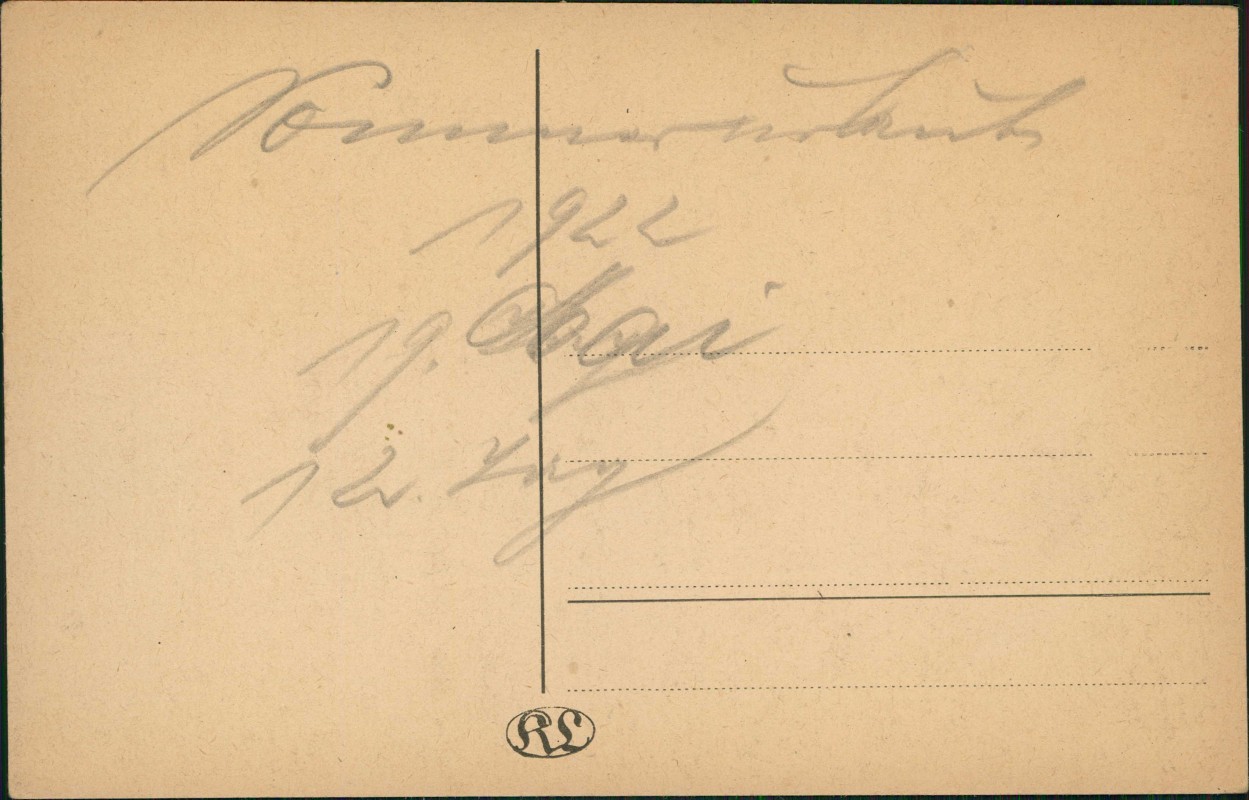 Sommerurlaub
1922
19.
12. Tag
RL